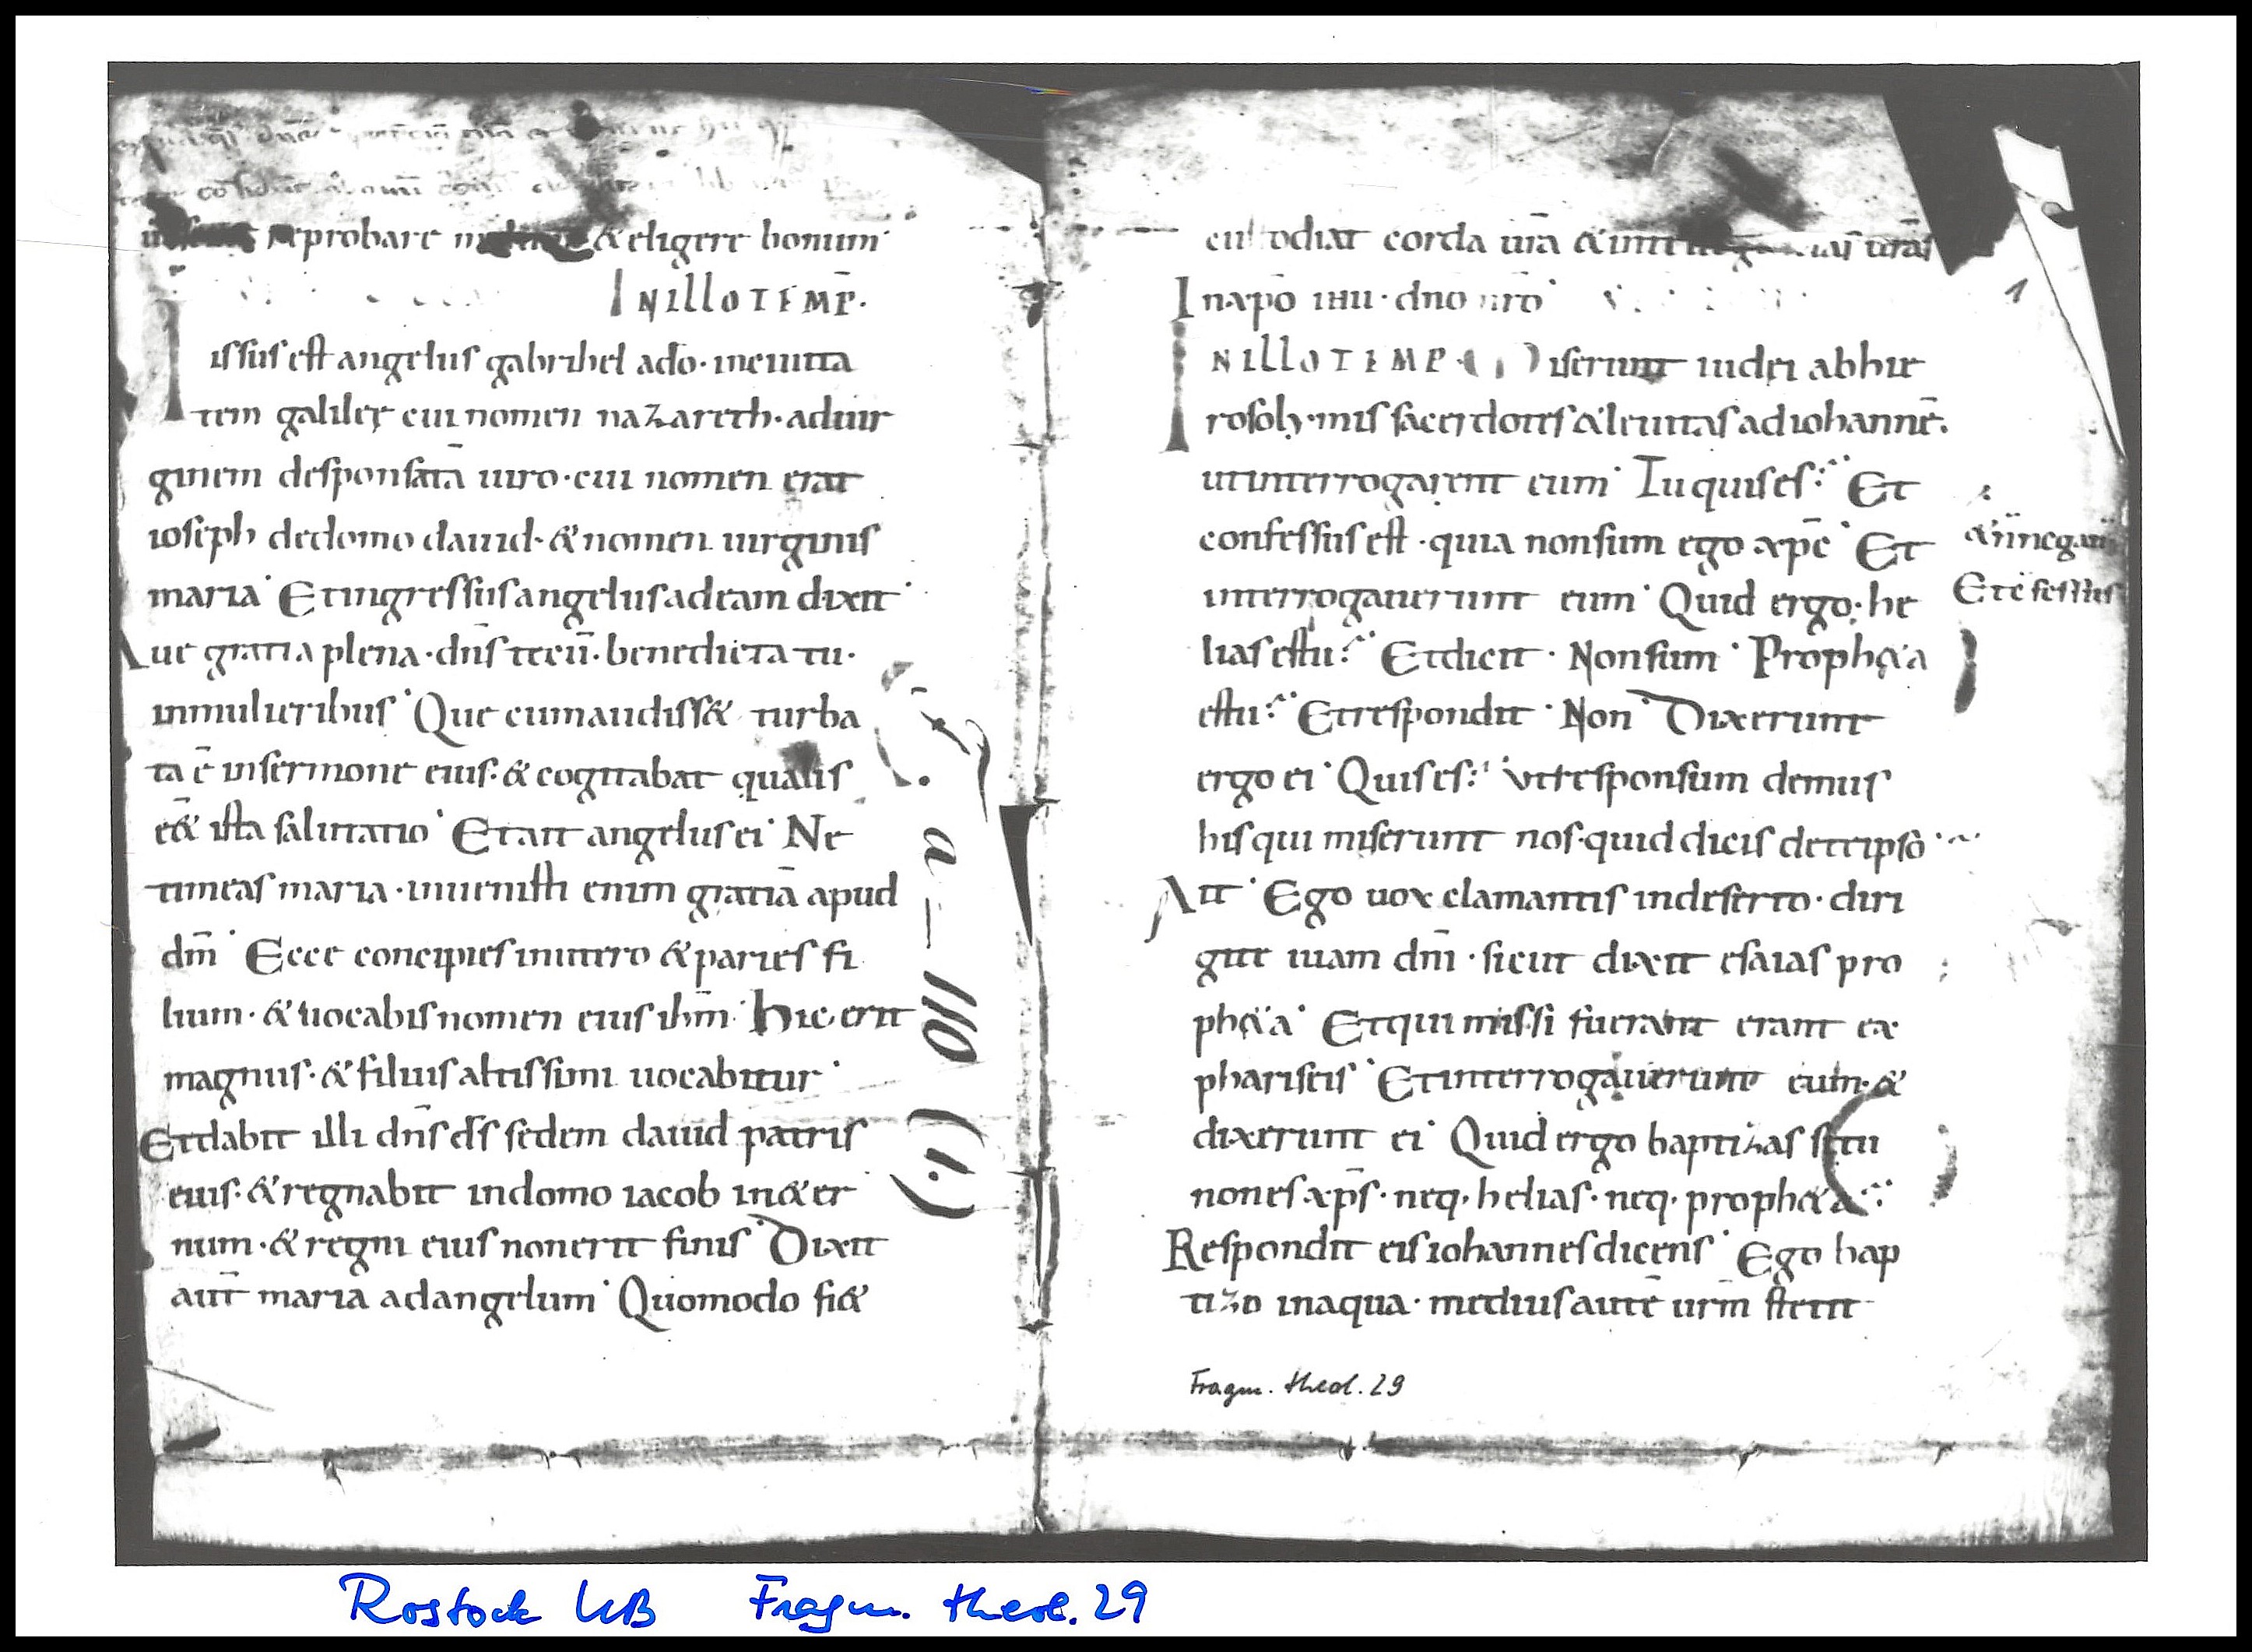 reprobare & eligere bonum
IN ILLO TEMP̄.
issus est angelus gabrihel a do· in ciuita
tem galileę cui nomen nazareth· ad uir
ginem desponsatā uiro· cui nomen erat
ioseph de domo dauid· & nomen uirginis
maria· Et ingressus angelus ad eam dixit·
Aue gratia plena· dn̄s tecū· benedicta tu·
in mulieribus· Que cum audiss& turba
ta ē in sermone eius· & cogitabat qualis
ēē& ista salutatio· Et ait angelus ei· Ne
timeas maria· inuenisti enim gratiā apud
dm̄· Ecce concipies in utero & paries fi
lium· & uocabis nomen eius ihm̄· hic erit
magnus· & filius altissimi uocabitur·
Et dabit illi dn̄s ds̄ sedem dauid patris
eius· & regnabit in domo iacob in &er
num· & regni eius non erit finis· Dixit
aut̄ maria ad angelum· Quomodo fi&
a – 110 (1.)
custodiat corda ur̄a & urās
In xp̄o ihu· dno nrō·
1
IN ILLO TEMP· Miserunt iudei ab hie
rosolymis sacerdotes & leuitas ad iohannē·
ut interrogarent eum· Tu quis es? Et
confessus est· quia non sum ego xp̄c· Et
& ñ negauit
Et cfessus
interrogauerunt eum· Quid ergo· he
lias es tu? Et dicit· Non sum· Proph&a
es tu? Et respondit· Non· Dixerunt
ergo ei· Quis es? Ut responsum demus
his qui miserunt nos· quid dicis de te ipso?
Ait· Ego uox clamantis in deserto· diri
gite uiam dm̄i· sicut dixit esaias pro
ph&a· Et qui missi fuerant erant ex
phariseis· Et interrogauerunt eum· &
dixerunt ei· Quid ergo baptizas si tu
non es xp̄s· neq· helias· neq· proph&a?
Respondit eis iohannes dicens· Ego bap
tizo in aqua· medius autē urm̄ stetit
Fragm. theol. 29
Rostock UB Fragm. theol. 29